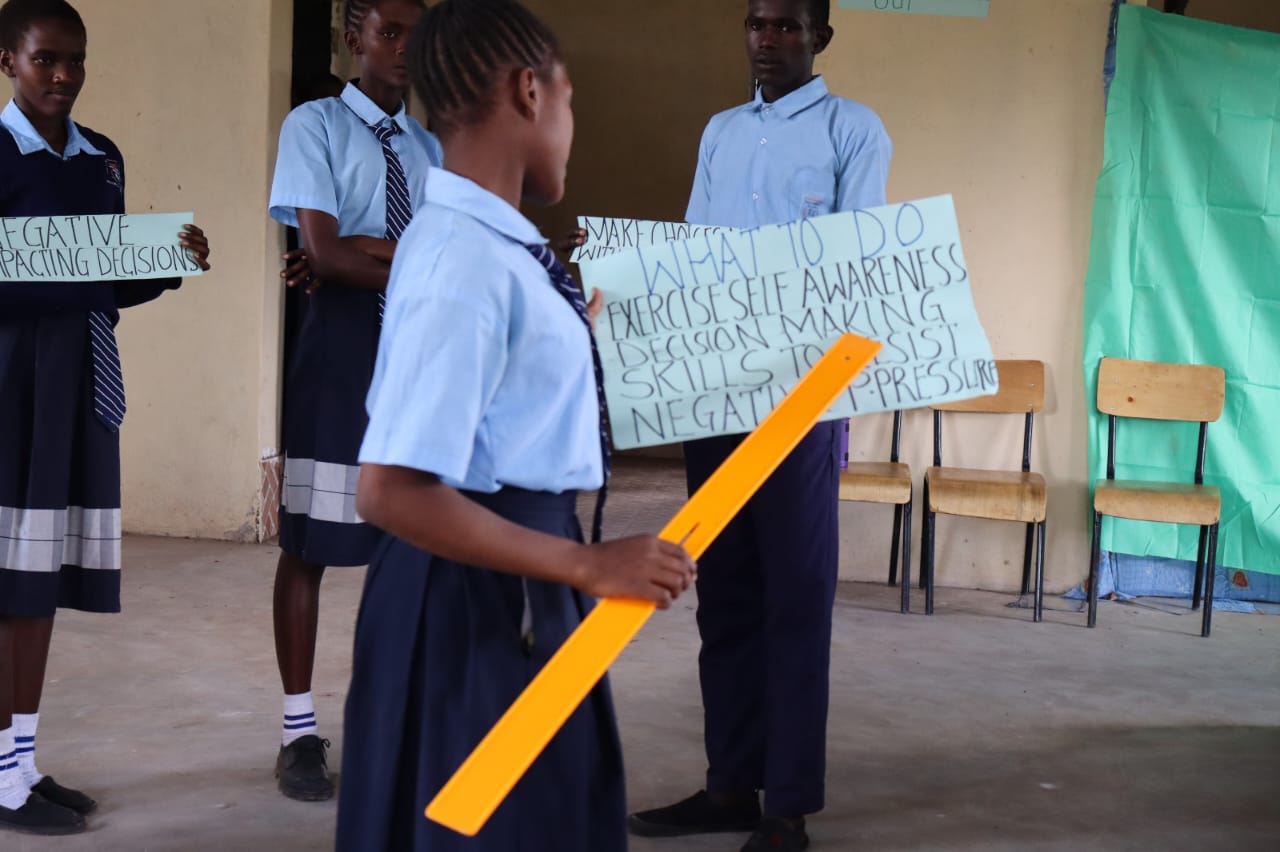 out
EGATIVE
MPACTING DECISIONS
MAKE CHOICES
WHAT TO DO
EXERCISE SELF AWARENESS
DECISION MAKING
SKILLS TO ESIST
NEGATI P.PRESSURE